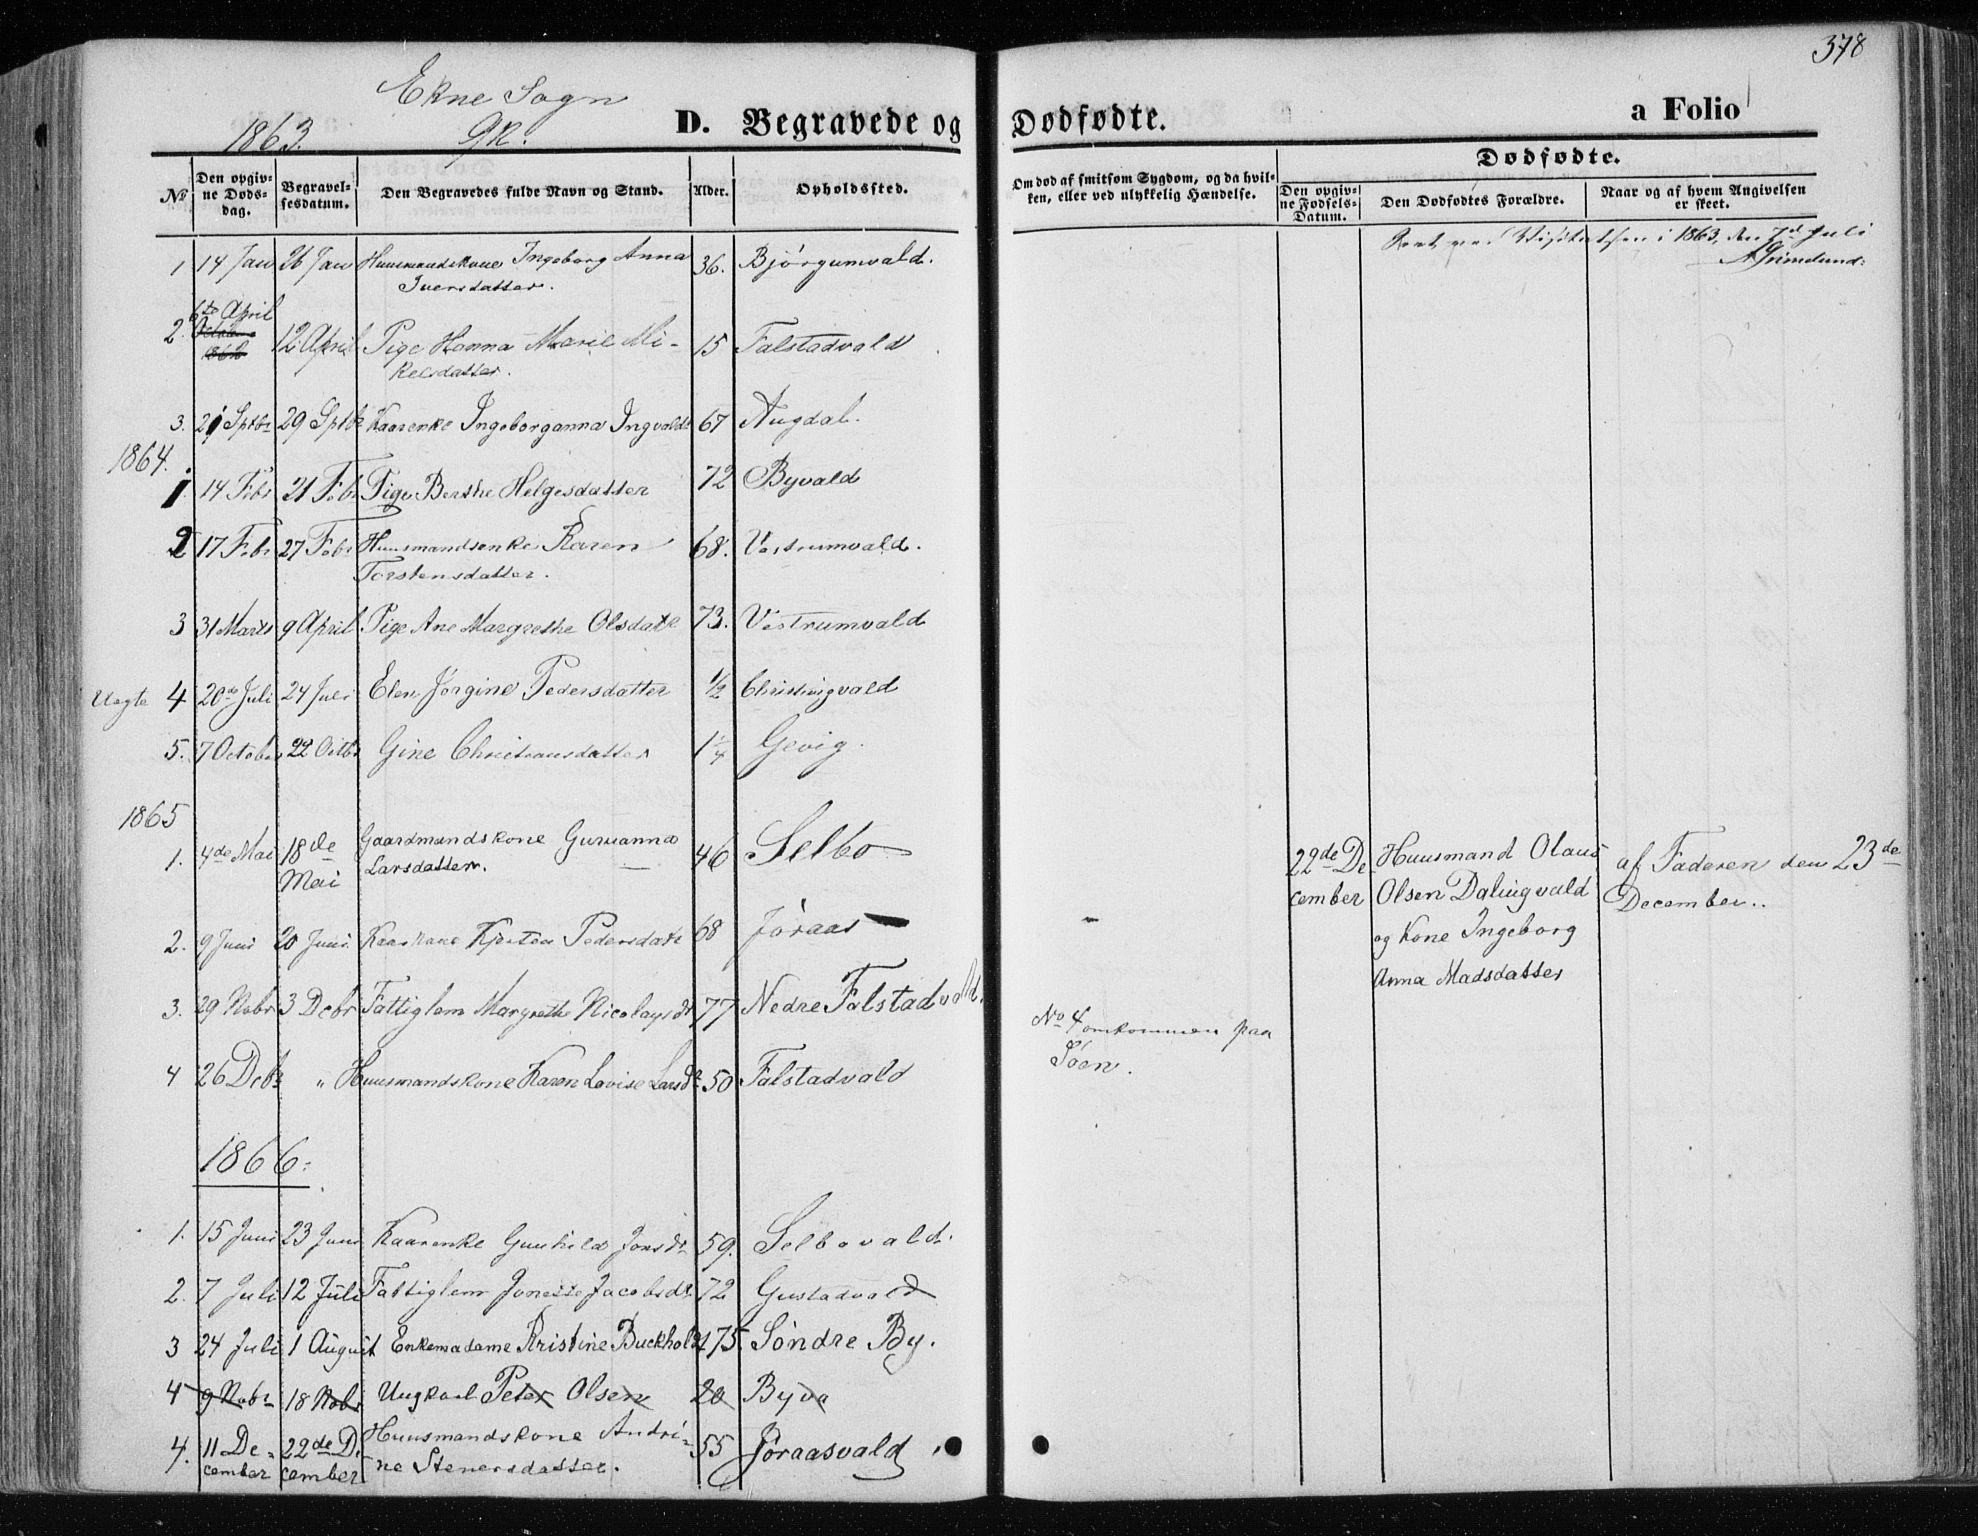 378
Ekne Sogn
1863. QK. D. Begravede og Dødfødte. a Folio
No
Den opgiv-
ne Døds-
dag.
Begravel-
sesdatum.
Den Begravedes fulde Navn og Stand.
Alder.
Opholdssted.
Om død af smitsom Sygdom, og da hvil-
ken, eller ved ulykkelig Hændelse.
Dødfødte.
Den opgiv-
ne Fødsels-
Datum.
Den Dødfødtes Forældre.
Naar og af hvem Angivelsen
er skeet.
ved Visitatsen i 1863, den 7d Juli
Grimelund
1 14 Jan 26 Jan Huusmandskone Ingeborg Anna 36. Bjørgumvald.
Iversdatter.
6te April
2. October 12 April Pige Hanna Marie Mi- 15 Falstadvald
1862 kelsdatter.
3. 21 Sptbr 29 Sptbr Kaarenke Ingeborganna Ingvaldr 67 Augdal.
1864.
1 14 Febr 21 Febr Pige Berthe Helgesdatter 72 Byvald
2 17 Febr 27 Febr Huusmandsenke Karen 68. Vestrumvald.
Torstensdatter.
3 31 Marts 9 April Pige Ane Margrethe Olsdatr 73. Vestrumvald
Uegte 4 20de Juli 24 Juli Elen Jørgine Pedersdatter 1/2 Christingvald
5. 7 Octobr 22 Octbr Gine Christiansdatter 1 1/4 Gevig.
1865
1. 4de Mai 18de Gaardmandskone Guruanna 46 Selbo
Mai Larsdatter.
22de De- Huusmand Olaus af Faderen den 23de
cember Olsen Dalingvald December..
og Kone Ingeborg
Anna Madsdatter
2. 9 Juni 20 Juni. Kaarkone Kjersten Pedersdatr 68 Jøraas
3. 29 Nobr 3 Debr Fattiglem Margrethe Nicolaysdr 77 Nedre Falstadvald.
No 4 omkommen paa
Søen.
4 26 Debr " Huusmandskone Karen Lovise Larsdr 50 Falstadvald
1866.
1. 15 Juni 23 Juni Kaarenke Gunhild Jonsdr 59. Selbovald.
2. 7 Juli 12 Juli Fattiglem Jonette Jacobsdr 72 Gustadvald
3 24 Juli 1 August Enkemadame Kristine Buckholdt 75. Søndre By.
4 9 Nobr 18 Nobr Ungkarl Peter Olsen 20 Byva
4. 11 De- 22de De- Huusmandskone Andri- 55 Jøraasvald
cember cember ne Stenersdatter.